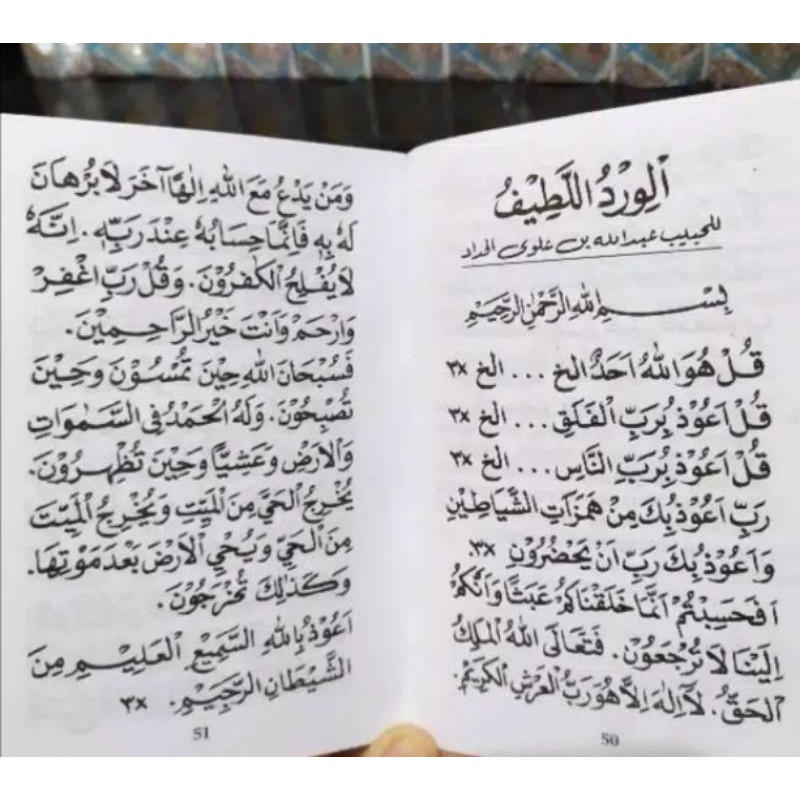 اَلْوِرْدُ اللَّطِيْفُ
للحبيب عبد الله بن علوى الحداد
بِسْمِ اللهِ الرَّحْمٰنِ الرَّحِيْمِ
قُلْ هُوَ اللهُ اَحَدٌ الخ ... الخ ×٣
قُلْ اَعُوْذُ بِرَبِّ الْفَلَقِ ... الخ ×٣
قُلْ اَعُوْذُ بِرَبِّ النَّاسِ ... الخ ×٣
رَبِّ اَعُوْذُ بِكَ مِنْ هَمَزَاتِ الشَّيَاطِيْنِ
وَاَعُوْذُ بِكَ رَبِّ اَنْ يَحْضُرُوْنِ ×٣.
اَفَحَسِبْتُمْ اَنَّمَا خَلَقْنَاكُمْ عَبَثًا وَاَنَّكُمْ
اِلَيْنَا لَا تُرْجَعُوْنَ. فَتَعَالَى اللهُ الْمَلِكُ
الْحَقُّ. لَآ اِلٰهَ اِلَّا هُوَ رَبُّ الْعَرْشِ الْكَرِيْمِ.
50
وَمَنْ يَدْعُ مَعَ اللهِ اِلٰهًا آخَرَ لَا بُرْهَانَ
لَهُ بِهِ فَاِنَّمَا حِسَابُهُ عِنْدَ رَبِّهِ. اِنَّهُ
لَا يُفْلِحُ الْكَافِرُوْنَ. وَقُلْ رَبِّ اغْفِرْ
وَارْحَمْ وَاَنْتَ خَيْرُ الرَّاحِمِيْنَ.
فَسُبْحَانَ اللهِ حِيْنَ تُمْسُوْنَ وَحِيْنَ
تُصْبِحُوْنَ. وَلَهُ الْحَمْدُ فِى السَّمٰوَاتِ
وَالْاَرْضِ وَعَشِيًّا وَحِيْنَ تُظْهِرُوْنَ.
يُخْرِجُ الْحَيَّ مِنَ الْمَيِّتِ وَيُخْرِجُ الْمَيِّتَ
مِنَ الْحَيِّ وَيُحْيِ الْاَرْضَ بَعْدَ مَوْتِهَا.
وَكَذٰلِكَ تُخْرَجُوْنَ.
اَعُوْذُ بِاللهِ السَّمِيْعِ الْعَلِيْمِ مِنَ
الشَّيْطَانِ الرَّجِيْمِ. ×٣
51